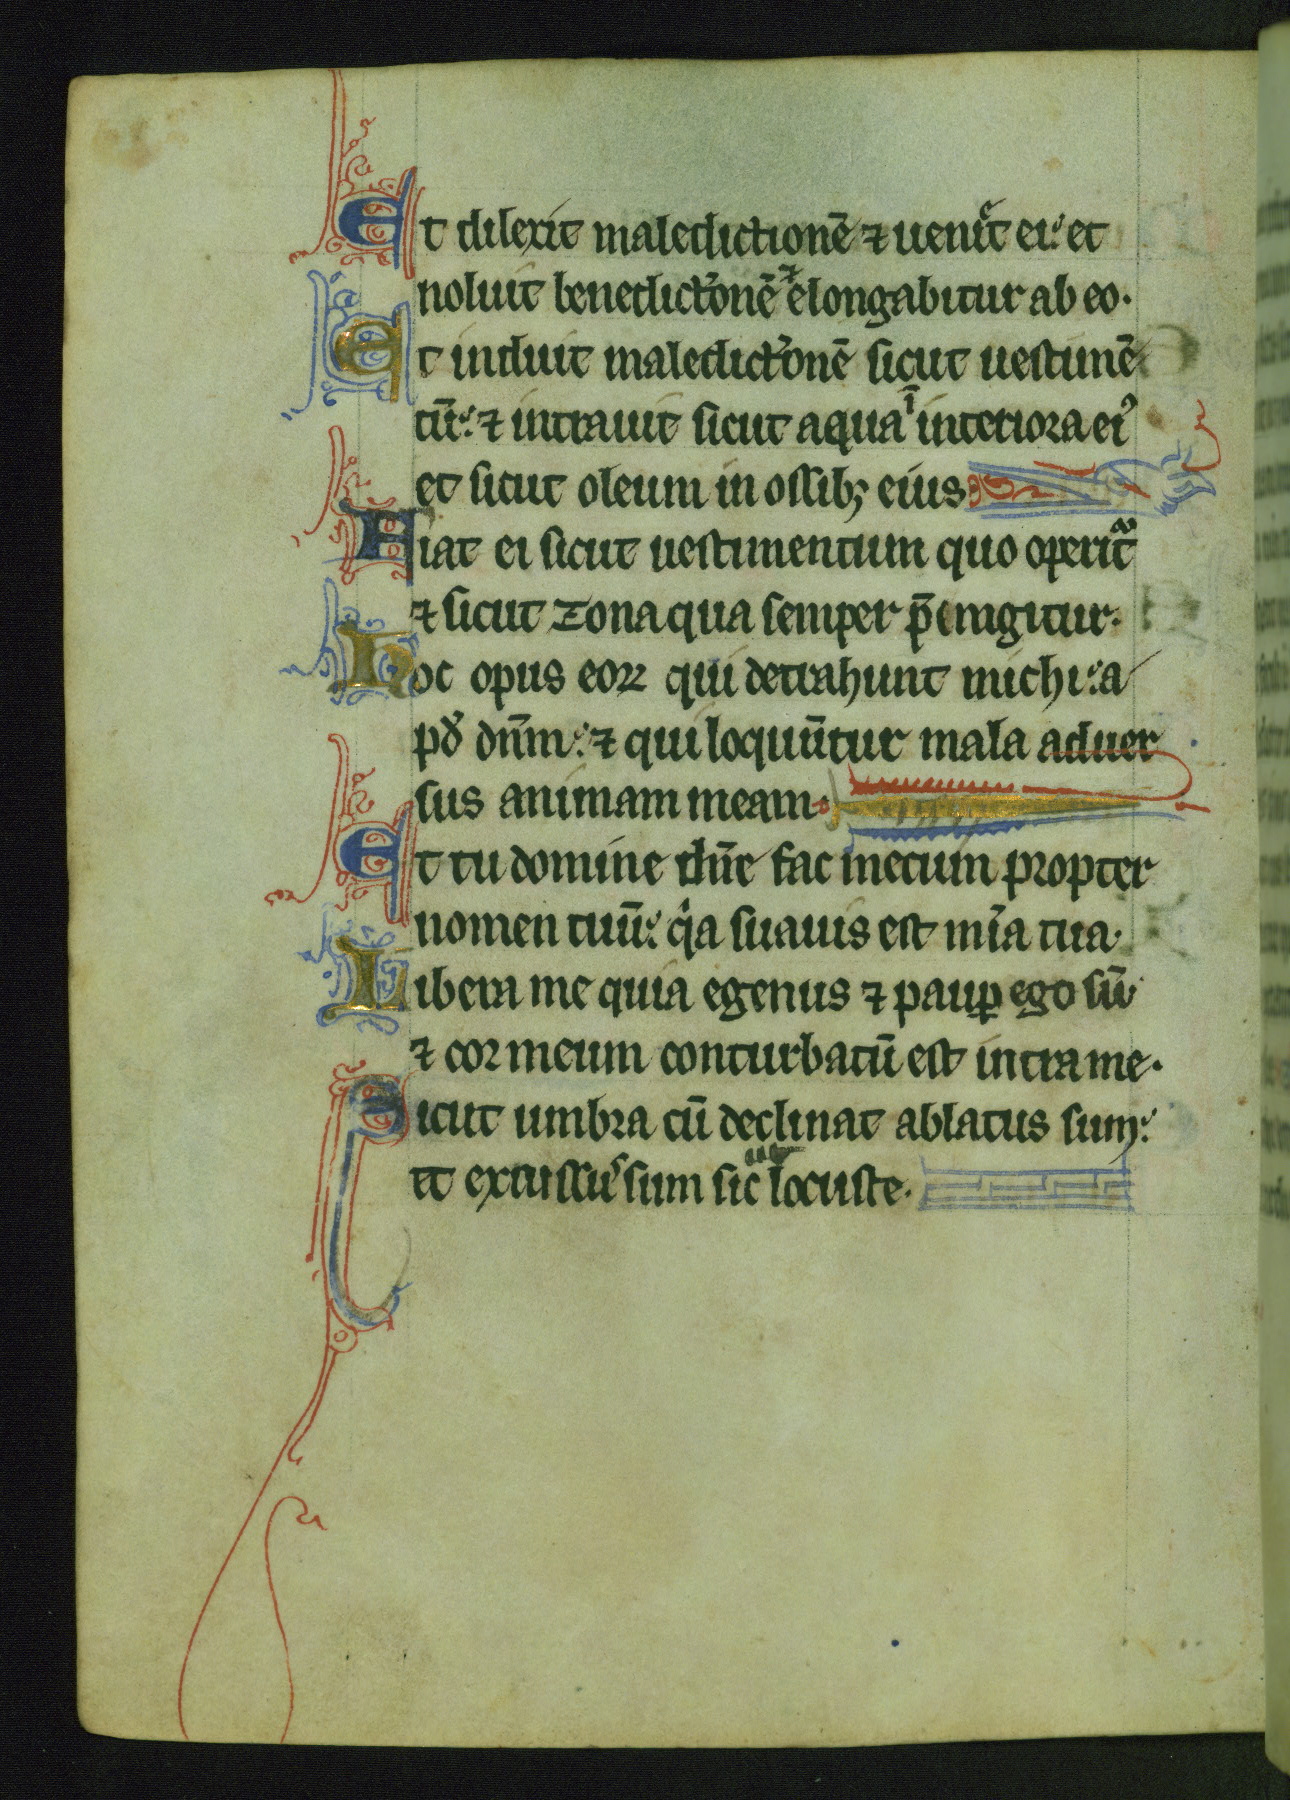 Et dilexit maledictionē ⁊ ueniet ei: et
noluit benedictōnē ⁊ elongabitur ab eo.
Et induit maledictōnē sicut uestimē
tū: ⁊ intrauit sicut aqua ī interiora ei᾽
et sicut oleum in ossibꝫ eius
Fiat ei sicut uestimentum quo operit᾽
⁊ sicut zona qua semper p̄cingitur.
Hoc opus eoꝝ qui detrahunt michi: a
pđ dn̄m: ⁊ qui loquūtur mala aduer
sus animam meam.
Et tu domine dn̄e fac mecum propter
nomen tuū: qͥa suauis est mīa tua.
Libera me quia egenus ⁊ paup̲ ego sū
⁊ cor meum conturbatū est intra me.
Sicut umbra cū declinat ablatus sum:
et excussus sum sic̄ locuste.